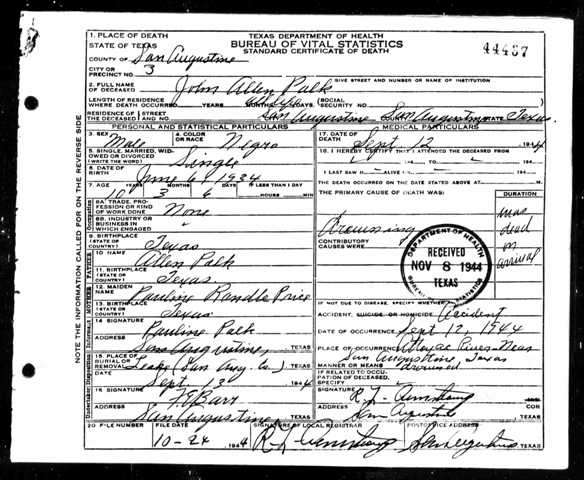 1. PLACE OF DEATH
STATE OF TEXAS
TEXAS DEPARTMENT OF HEALTH
BUREAU OF VITAL STATISTICS
STANDARD CERTIFICATE OF DEATH
44487
COUNTY OF San Augustine
CITY OR
PRECINCT NO. 3
GIVE STREET AND NUMBER OR NAME OF INSTITUTION
2. FULL NAME
OF DECEASED John Allen Polk
LENGTH OF RESIDENCE
WHERE DEATH OCCURRED YEARS MONTHS DAYS (SOCIAL
SECURITY NO.
RESIDENCE OF STREET
THE DECEASED AND NO. San Augustine San Augustine STATE Texas
PERSONAL AND STATISTICAL PARTICULARS
MEDICAL PARTICULARS
3. SEX Male
4. COLOR
OR RACE Negro
17. DATE OF
DEATH Sept 12 1944
5. SINGLE, MARRIED, WID-
OWED OR DIVORCED
(WRITE THE WORD) Single
18. I HEREBY CERTIFY THAT I ATTENDED THE DECEASED FROM
6. DATE OF
BIRTH June 6, 1934
I LAST SAW H ALIVE
7. AGE YEARS MONTHS DAYS IF LESS THAN 1 DAY
10 3 6 HOURS MIN
THE DEATH OCCURRED ON THE DATE STATED ABOVE AT M.
8A. TRADE, PRO-
FESSION OR KIND
OF WORK DONE None
THE PRIMARY CAUSE OF DEATH WAS:
DURATION
8B. INDUSTRY OR
BUSINESS IN
WHICH ENGAGED "
Drowning
was
dead
on
arrival
9. BIRTHPLACE
(STATE OR
COUNTRY) Texas
CONTRIBUTORY
CAUSES WERE:
DEPARTMENT OF HEALTH
RECEIVED
NOV 8 1944
TEXAS
BUREAU OF VITAL STATISTICS
10. NAME Allen Polk
11. BIRTHPLACE
(STATE OR
COUNTRY) Texas
12. MAIDEN
NAME Pauline Randle Price
IF NOT DUE TO DISEASE, SPECIFY WHETHER:
13. BIRTHPLACE
(STATE OR
COUNTRY) Texas
ACCIDENT, SUICIDE, OR HOMICIDE Accident
14. SIGNATURE
Pauline Polk
DATE OF OCCURRENCE Sept 12, 1944
ADDRESS San Augustine, TEXAS
PLACE OF OCCURRENCE Attoyac River - Near
San Augustine, Texas
15. PLACE OF
BURIAL OR
REMOVAL (San Aug. Co.) TEXAS
MANNER OR MEANS drowned
DATE Sept 13 1944
IF RELATED TO OCCU-
PATION OF DECEASED,
SPECIFY
16. SIGNATURE
SIGNATURE R. L. Armstrong
ADDRESS San Augustine, TEXAS
ADDRESS San Augustine TEXAS
COR
20 FILE NUMBER
FILE DATE
10-24 1944
SIGNATURE OF LOCAL REGISTRAR
R. L. Armstrong
POSTOFFICE ADDRESS
San Augustine TEXAS
NOTE THE INFORMATION CALLED FOR ON THE REVERSE SIDE
Occupation
FATHER
MOTHER
Informant